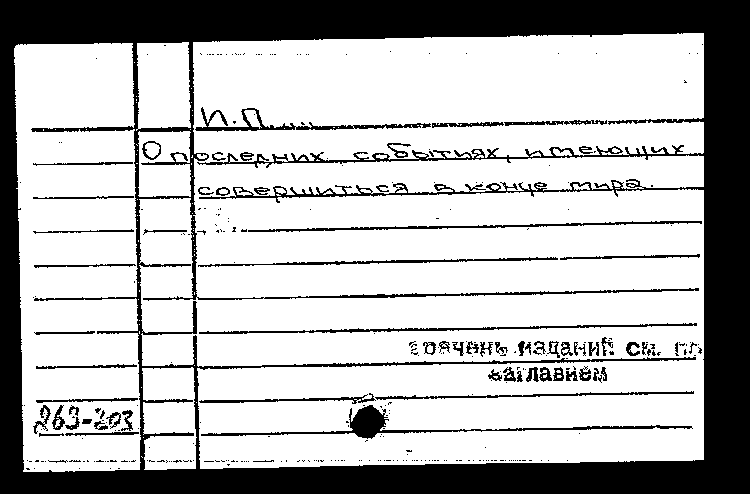 И.П....
О последних событиях, имеющих
совершиться в конце мира.
издании см.
заглавием
263-203